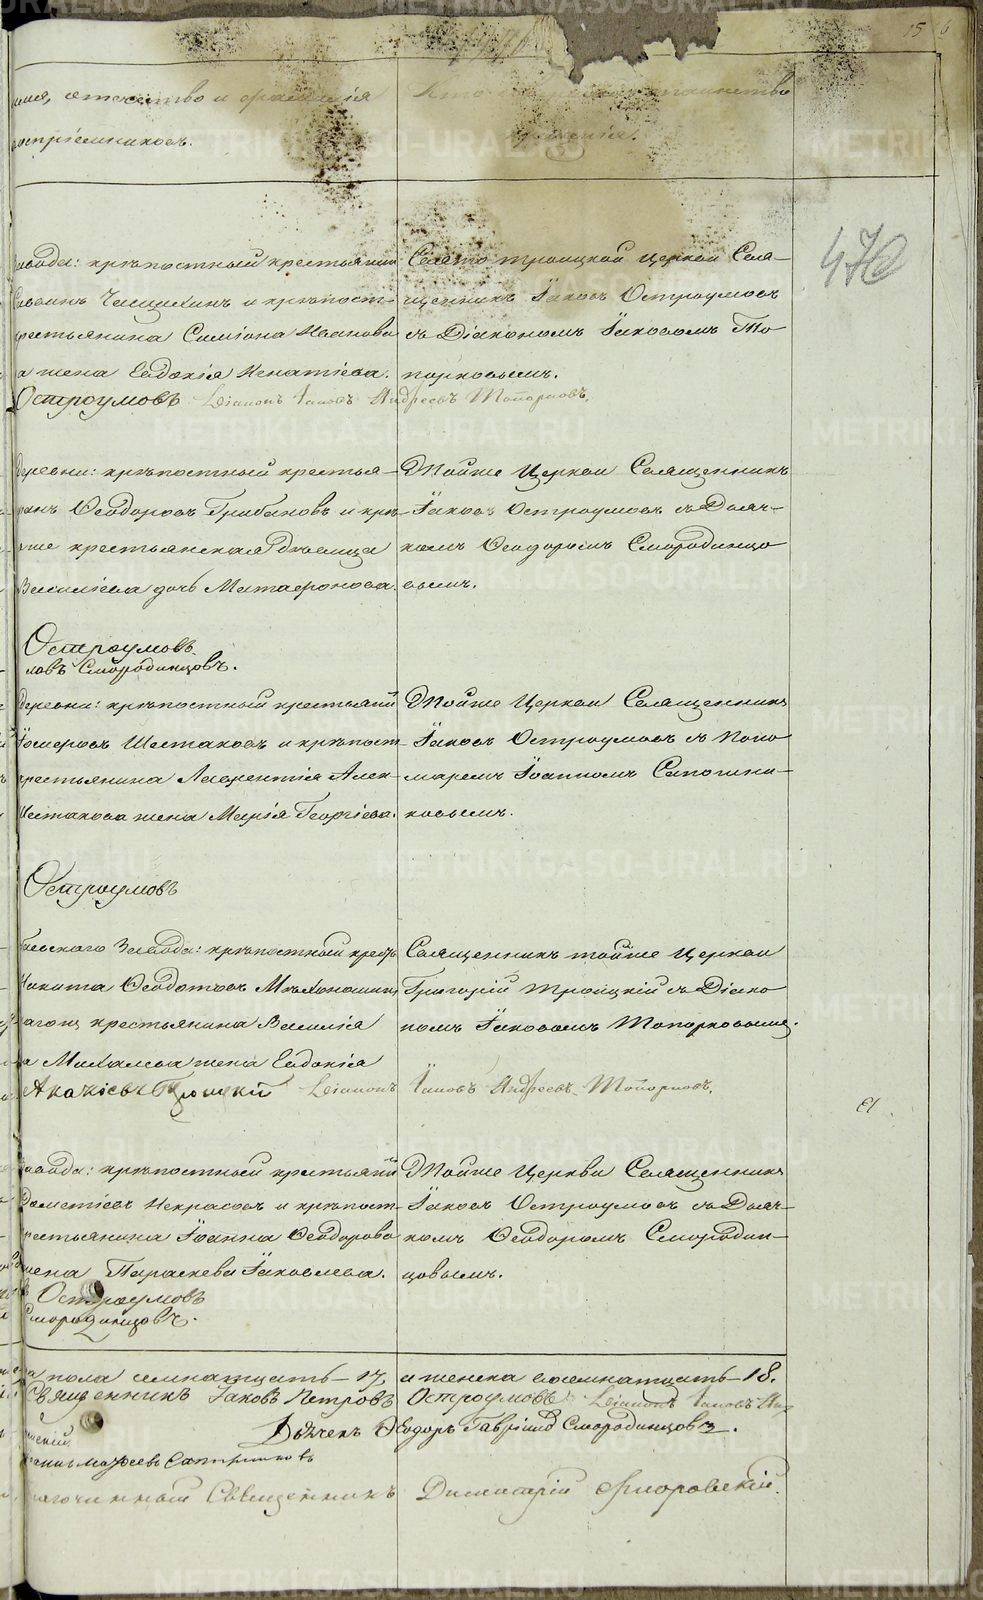 имя, отечество и фамилія
воспріемниковъ.
Кто совершалъ таинство
крещенія.
15 6
завода: крѣпостный крестьянинъ
Чащихинъ и крѣпост-
крестьянина Симіона Иванова
а жена Евдокія Игнатіева.
Остроумовъ Діаконъ Іаковъ Андреевъ Топорковъ.
Свято троицкой церкви Свя-
щенникъ Іаковъ Остроумовъ
съ Діакономъ Іаковомъ То
порковымъ.
476
деревни: крѣпостный крестья-
Ѳеодоровъ Грибановъ и крѣ-
крестьянская дѣвица
Василіева дочь Митафонова.
Остроумовъ
Смородинцовъ.
Тойже Церкви Священникъ
Іаковъ Остроумовъ съ Дьяч-
комъ Ѳеодоромъ Смородинцо
вымъ.
деревни: крѣпостный крестьянинъ
Шестаковъ и крѣпост-
крестьянина Лаврентія Алек-
Шестакова жена Марія Георгіева.
Остроумовъ
Тойже Церкви Священникъ
Іаковъ Остроумовъ съ Поно
маремъ Іоанномъ Сапожни-
ковымъ.
Завода: крѣпостный крест
Никита Ѳеодотовъ
крестьянина Василія
а Михалева жена Евдокія
Троицкій Діаконъ Іаковъ Андреевъ Топорковъ.
Священникъ тойже Церкви
Григорій Троицкій съ Діако
номъ Іаковомъ Топорковымъ.
завода: крѣпостный крестьянинъ
Дометіевъ Некрасовъ и крѣпост-
крестьянина Іоанна Ѳеодорова
жена Параскева Іаковлева.
Остроумовъ
Смородинцовъ.
Тойже Церкви Священникъ
Іаковъ Остроумовъ съ Дьяч-
комъ Ѳеодоромъ Смородин-
цовымъ.
а пола семнатцать - 17, и женска восемнатцать - 18.
Священникъ Іаковъ Петровъ Остроумовъ Діаконъ Іаковъ Анд
Дьячекъ Ѳеодоръ Гавріловъ Смородинцовъ.
Матфеевъ Сапожниковъ
Благочинный Священникъ Димитрій Флоровскій.